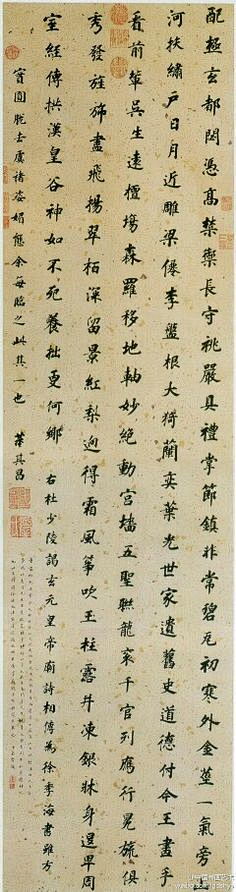 配極玄都閟憑高禁籞長守祧嚴具禮掌節鎮非常碧瓦初寒外金莖一氣旁
河扶繡戶日月近雕梁僊李盤根大猗蘭奕葉光世家遺舊史道德付今王畫手
看前輩吳生遠擅場森羅移地軸妙絕動宮牆五聖聯龍袞千官列鴈行冕旒俱
秀發旌旆盡飛揚翠柏深留景紅梨迥得霜風箏吹玉柱露井凍銀牀身退卑周
室經傳拱漢皇谷神如不死養拙更何鄉 右杜少陵謁玄元皇帝廟詩相傳為徐季海書雖方
實圓脫去虞褚姿媚態余每臨之此其一也 董其昌